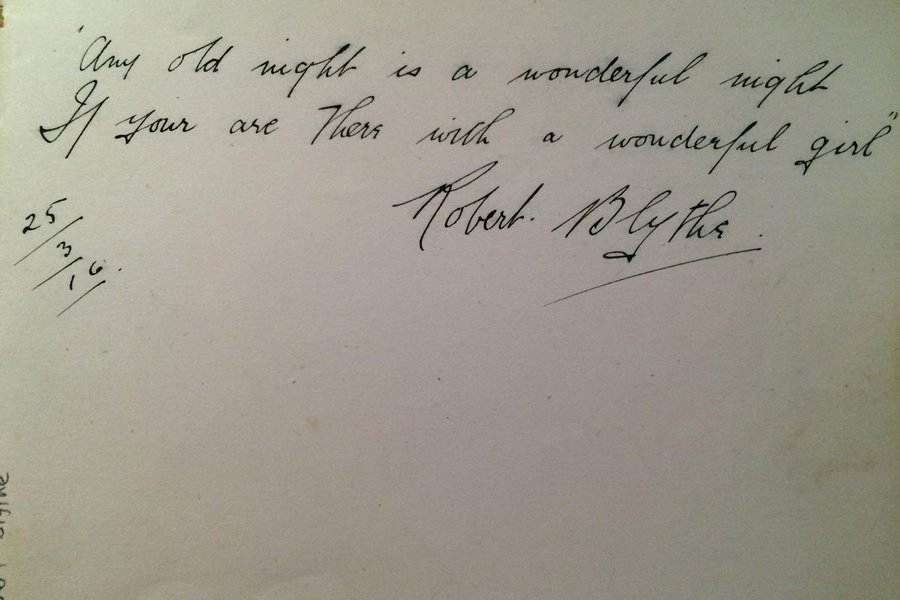 "Any old night is a wonderful night
If your are There with a wonderful girl"
Robert. Blythe.
25/3/16.